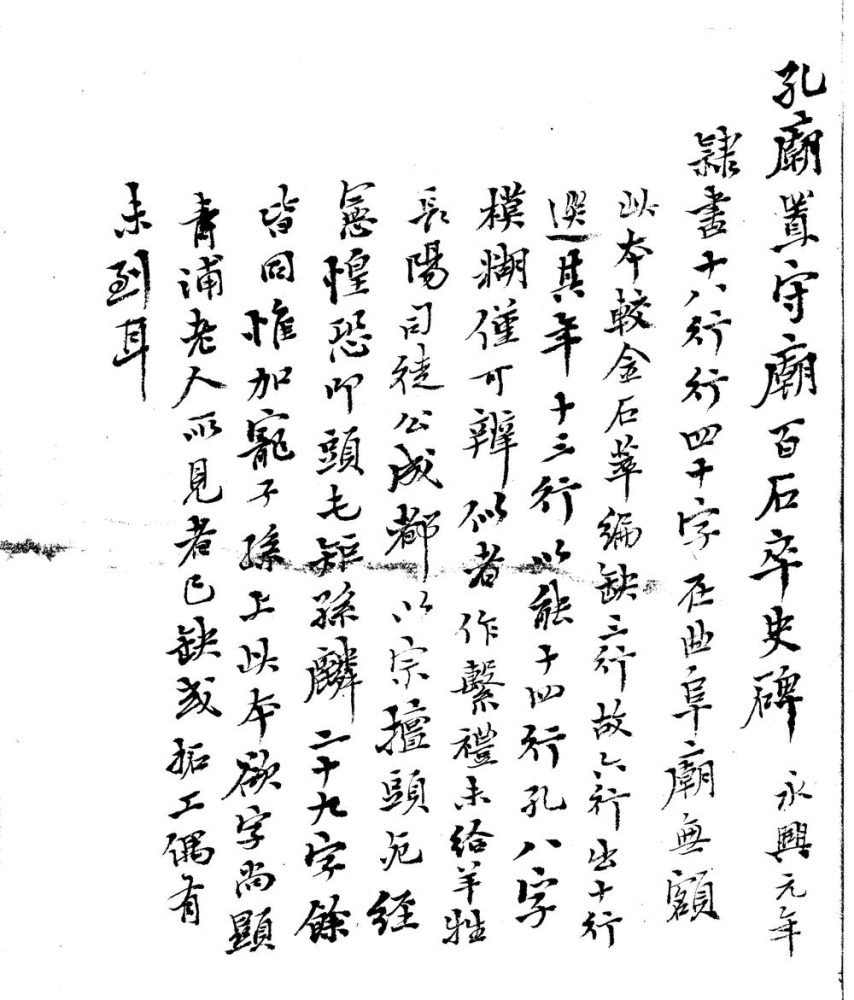 孔廟置守廟百石卒史碑 永興元年
隸書十八行行四十字在曲阜廟無額
此本較金石萃編缺三行故六行出十行
選其年十三行以能十四行孔八字
模糊僅可辨似者作繫禮未給羊牲
長陽司徒公成都以宗擅頭死經
寫惶恐叩頭七鉅孫麟二十九字餘
皆同惟加寵子孫上此本欲字尚顯
青浦老人所見者已缺或拓工偶有
未到耳